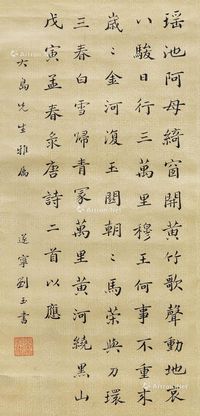 瑶池阿母綺窗開黃竹歌聲動地哀
八駿日行三萬里穆王何事不重來
歲〻金河復玉關朝〻馬策與刀環
三春白雪歸青冢萬里黃河繞黑山
戊寅孟春录唐詩二首以應
大島先生雅屬
遂寧劉玉書